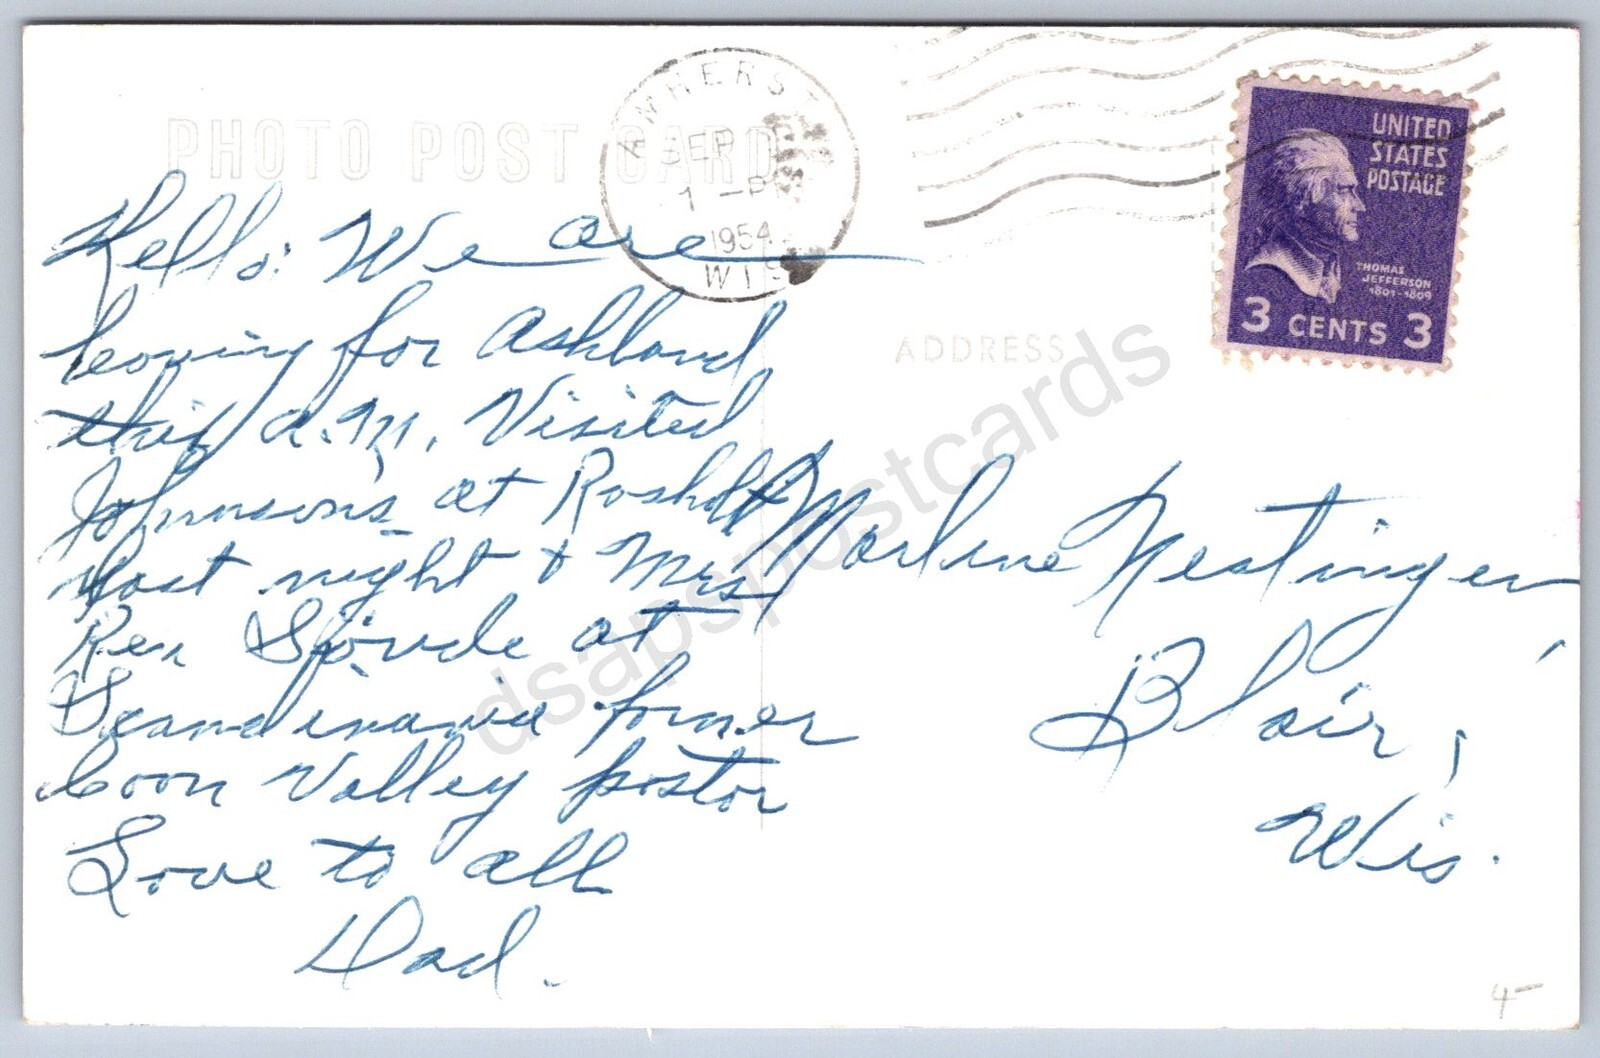 PHOTO POST CARD
AMHERST
SEP
1 - PM
1954
WIS
UNITED
STATES
POSTAGE
THOMAS
JEFFERSON
1801-1809
3 CENTS 3
ADDRESS
Hello: We are
leaving for Ashland
this a.m. Visited
Johnsons at Rosholt
last night & Mrs
Rev at
Scandinavia former
Coon Valley pastor
Love to all
Dad.
Marlene Nestingen,
Blair,
Wis.
4-
dsapspostcards